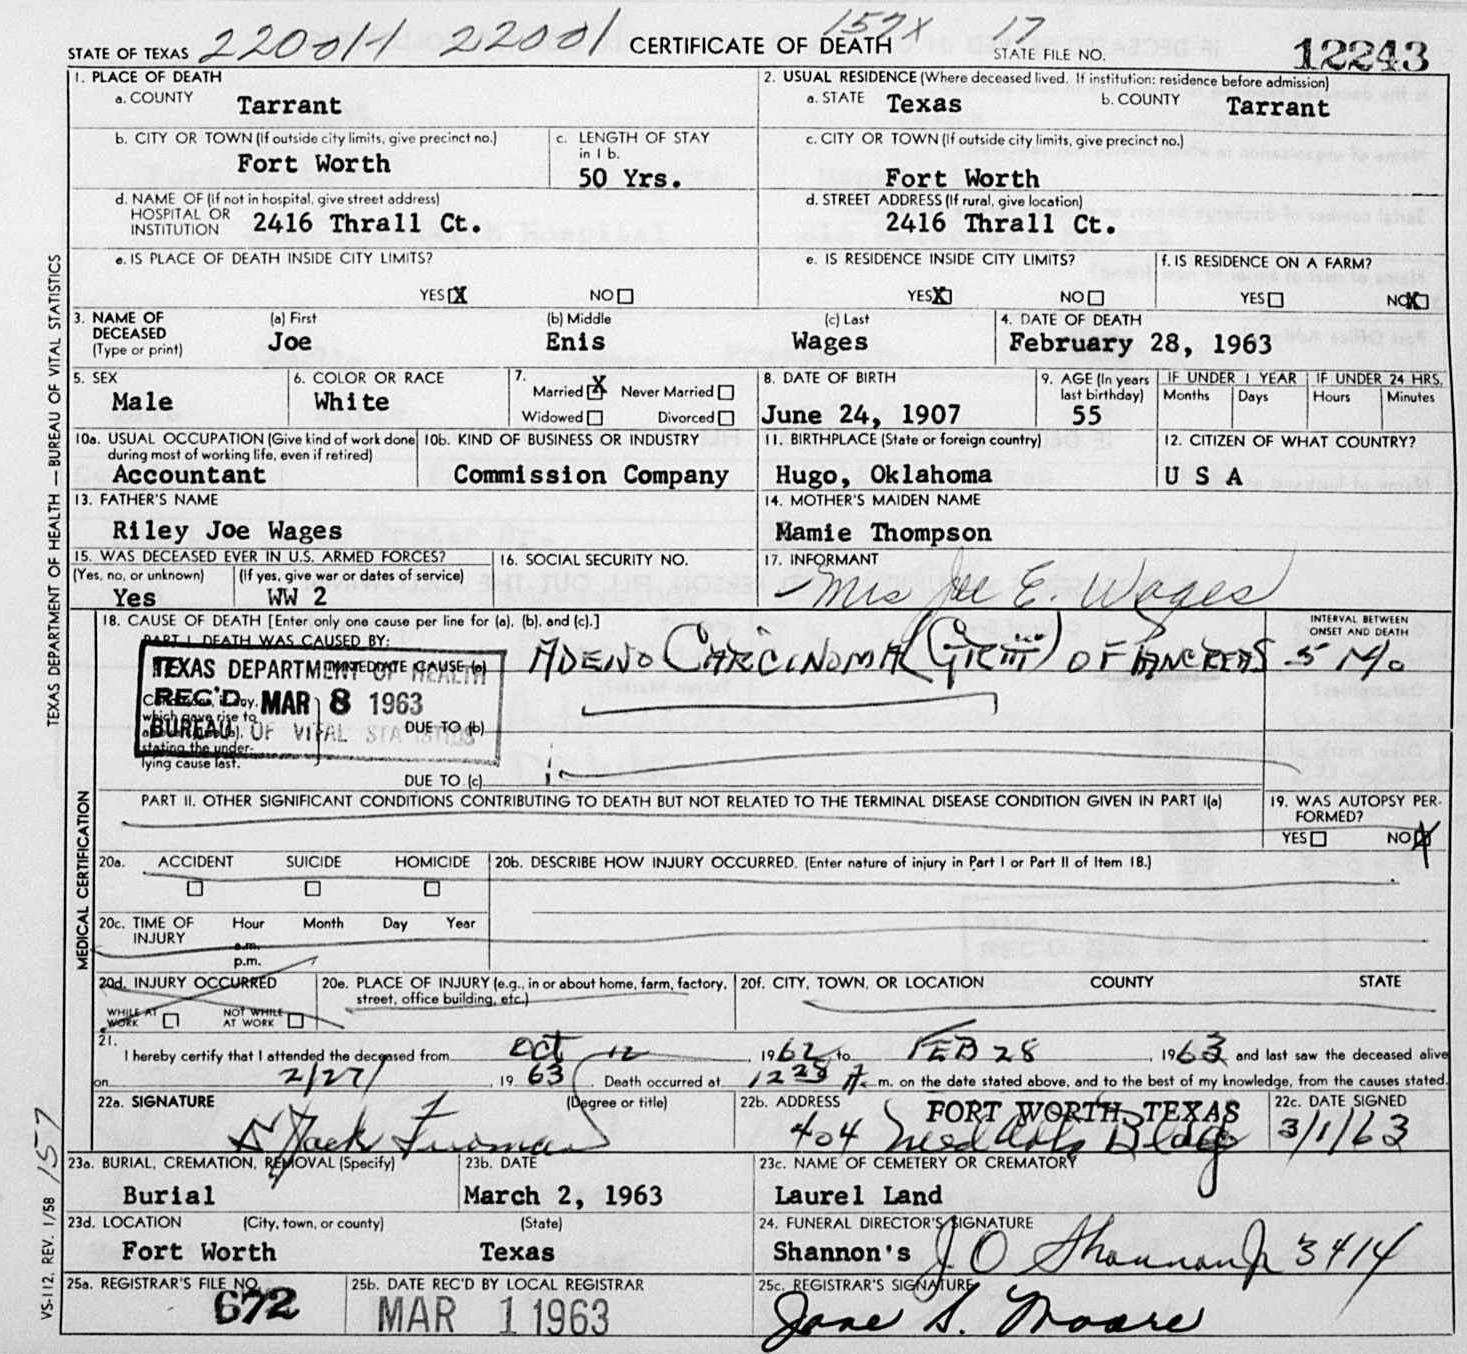 22001H 22001 157X 17
STATE OF TEXAS CERTIFICATE OF DEATH STATE FILE NO. 12243
1. PLACE OF DEATH
a. COUNTY Tarrant
2. USUAL RESIDENCE (Where deceased lived. If institution: residence before admission)
a. STATE Texas b. COUNTY Tarrant
b. CITY OR TOWN (If outside city limits, give precinct no.)
Fort Worth
c. LENGTH OF STAY
in 1 b.
50 Yrs.
c. CITY OR TOWN (If outside city limits, give precinct no.)
Fort Worth
d. NAME OF (If not in hospital, give street address)
HOSPITAL OR
INSTITUTION 2416 Thrall Ct.
d. STREET ADDRESS (If rural, give location)
2416 Thrall Ct.
e. IS PLACE OF DEATH INSIDE CITY LIMITS?
YES X NO
e. IS RESIDENCE INSIDE CITY LIMITS?
YES X NO
f. IS RESIDENCE ON A FARM?
YES NO X
3. NAME OF
DECEASED
(Type or print)
(a) First (b) Middle (c) Last
Joe Enis Wages
4. DATE OF DEATH
February 28, 1963
5. SEX
Male
6. COLOR OR RACE
White
7.
Married X Never Married
Widowed Divorced
8. DATE OF BIRTH
June 24, 1907
9. AGE (In years
last birthday)
55
IF UNDER 1 YEAR IF UNDER 24 HRS.
Months Days Hours Minutes
10a. USUAL OCCUPATION (Give kind of work done
during most of working life, even if retired)
Accountant
10b. KIND OF BUSINESS OR INDUSTRY
Commission Company
11. BIRTHPLACE (State or foreign country)
Hugo, Oklahoma
12. CITIZEN OF WHAT COUNTRY?
U S A
13. FATHER'S NAME
Riley Joe Wages
14. MOTHER'S MAIDEN NAME
Mamie Thompson
15. WAS DECEASED EVER IN U.S. ARMED FORCES?
(Yes, no, or unknown) (If yes, give war or dates of service)
Yes WW 2
16. SOCIAL SECURITY NO.
17. INFORMANT
Mrs Joe E. Wages
18. CAUSE OF DEATH [Enter only one cause per line for (a), (b), and (c).]
PART I. DEATH WAS CAUSED BY:
IMMEDIATE CAUSE (a) ADENO CARCINOMA OF PANCREAS
INTERVAL BETWEEN
ONSET AND DEATH
5 Mo
TEXAS DEPARTMENT OF HEALTH
REC'D MAR 8 1963
BUREAU OF VITAL STATISTICS
Conditions, if any,
which gave rise to
above cause (a),
stating the under-
lying cause last.
DUE TO (b)
DUE TO (c)
PART II. OTHER SIGNIFICANT CONDITIONS CONTRIBUTING TO DEATH BUT NOT RELATED TO THE TERMINAL DISEASE CONDITION GIVEN IN PART I(a)
19. WAS AUTOPSY PER-
FORMED?
YES NO X
20a. ACCIDENT SUICIDE HOMICIDE
20b. DESCRIBE HOW INJURY OCCURRED. (Enter nature of injury in Part I or Part II of Item 18.)
20c. TIME OF
INJURY
Hour Month Day Year
a.m.
p.m.
20d. INJURY OCCURRED
WHILE AT
WORK
NOT WHILE
AT WORK
20e. PLACE OF INJURY (e.g., in or about home, farm, factory,
street, office building, etc.)
20f. CITY, TOWN, OR LOCATION COUNTY STATE
21.
I hereby certify that I attended the deceased from Oct 12, 1962 to FEB 28, 1963 and last saw the deceased alive
on 2/27/, 1963. Death occurred at 1228 A. m. on the date stated above, and to the best of my knowledge, from the causes stated.
22a. SIGNATURE (Degree or title)
Jack Furman
22b. ADDRESS
FORT WORTH, TEXAS
404 Med Arts Bldg
22c. DATE SIGNED
3/1/63
23a. BURIAL, CREMATION, REMOVAL (Specify)
Burial
23b. DATE
March 2, 1963
23c. NAME OF CEMETERY OR CREMATORY
Laurel Land
23d. LOCATION (City, town, or county) (State)
Fort Worth Texas
24. FUNERAL DIRECTOR'S SIGNATURE
Shannon's J O Shannon Jr 3414
25a. REGISTRAR'S FILE NO.
672
25b. DATE REC'D BY LOCAL REGISTRAR
MAR 1 1963
25c. REGISTRAR'S SIGNATURE
Jane S. Moore
TEXAS DEPARTMENT OF HEALTH — BUREAU OF VITAL STATISTICS
MEDICAL CERTIFICATION
VS-112. REV. 1/58 157